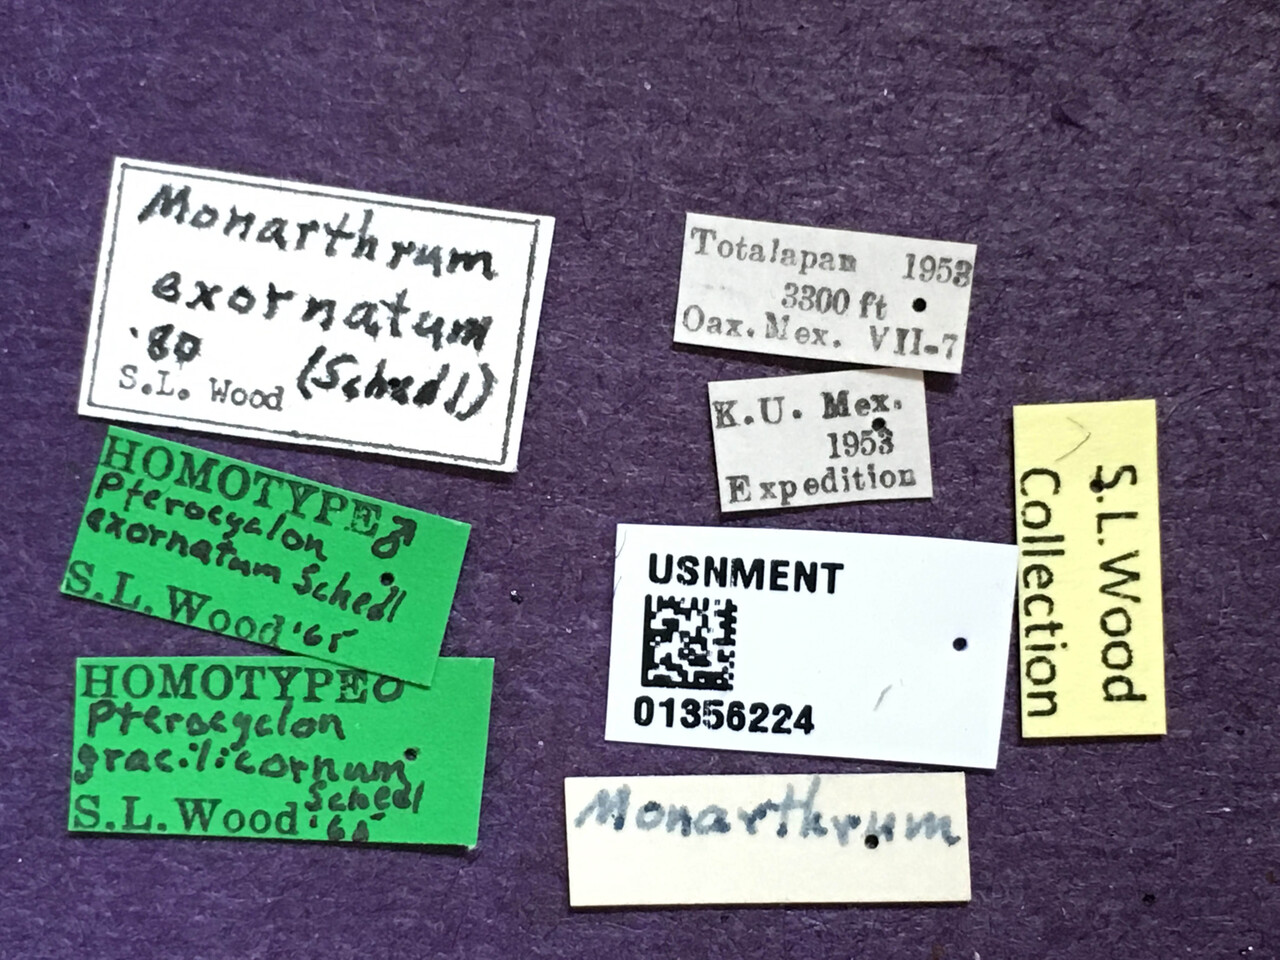 Monarthrum
exornatum
'80 (Schedl)
S.L. Wood
HOMOTYPE♂
Pterocyclon
exornatum Schedl
S.L. Wood '65
HOMOTYPE♂
Pterocyclon
gracilicornum
Schedl
S.L. Wood
Totalapan 1953
3300 ft
Oax. Mex. VII-7
K.U. Mex.
1953
Expedition
USNMENT
01356224
Monarthrum
S.L. Wood
Collection